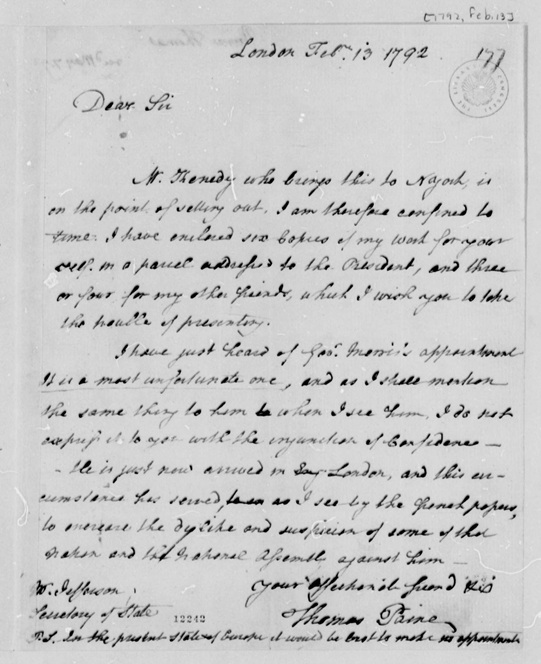 [1792, Feb. 13]
London Feby. 13 1792
177
Dear Sir
Mr. Kenedy who brings this to N York, is
on the point of setting out. I am therefore confined to
time. I have enclosed six Copies of my work for your
self in a parcel addressed to the President, and three
or four for my other friends, which I wish you to take
the trouble of presenting.
I have just heard of Govr. Morris's appointment
It is a most unfortunate one, and as I shall mention
the same thing to him when I see him, I do not
express it to you with the injunction of Confidence —
- He is just now arrived in London, and this cir-
cumstance has served, as I see by the french papers,
to increase the dyslike and suspicion of some of that
Nation and the National Assembly against him —
Your affectionate friend &c
Mr. Jefferson
Secretary of State
12242
Thomas Paine
P.S. In the present State of Europe it would be best to make no appointments